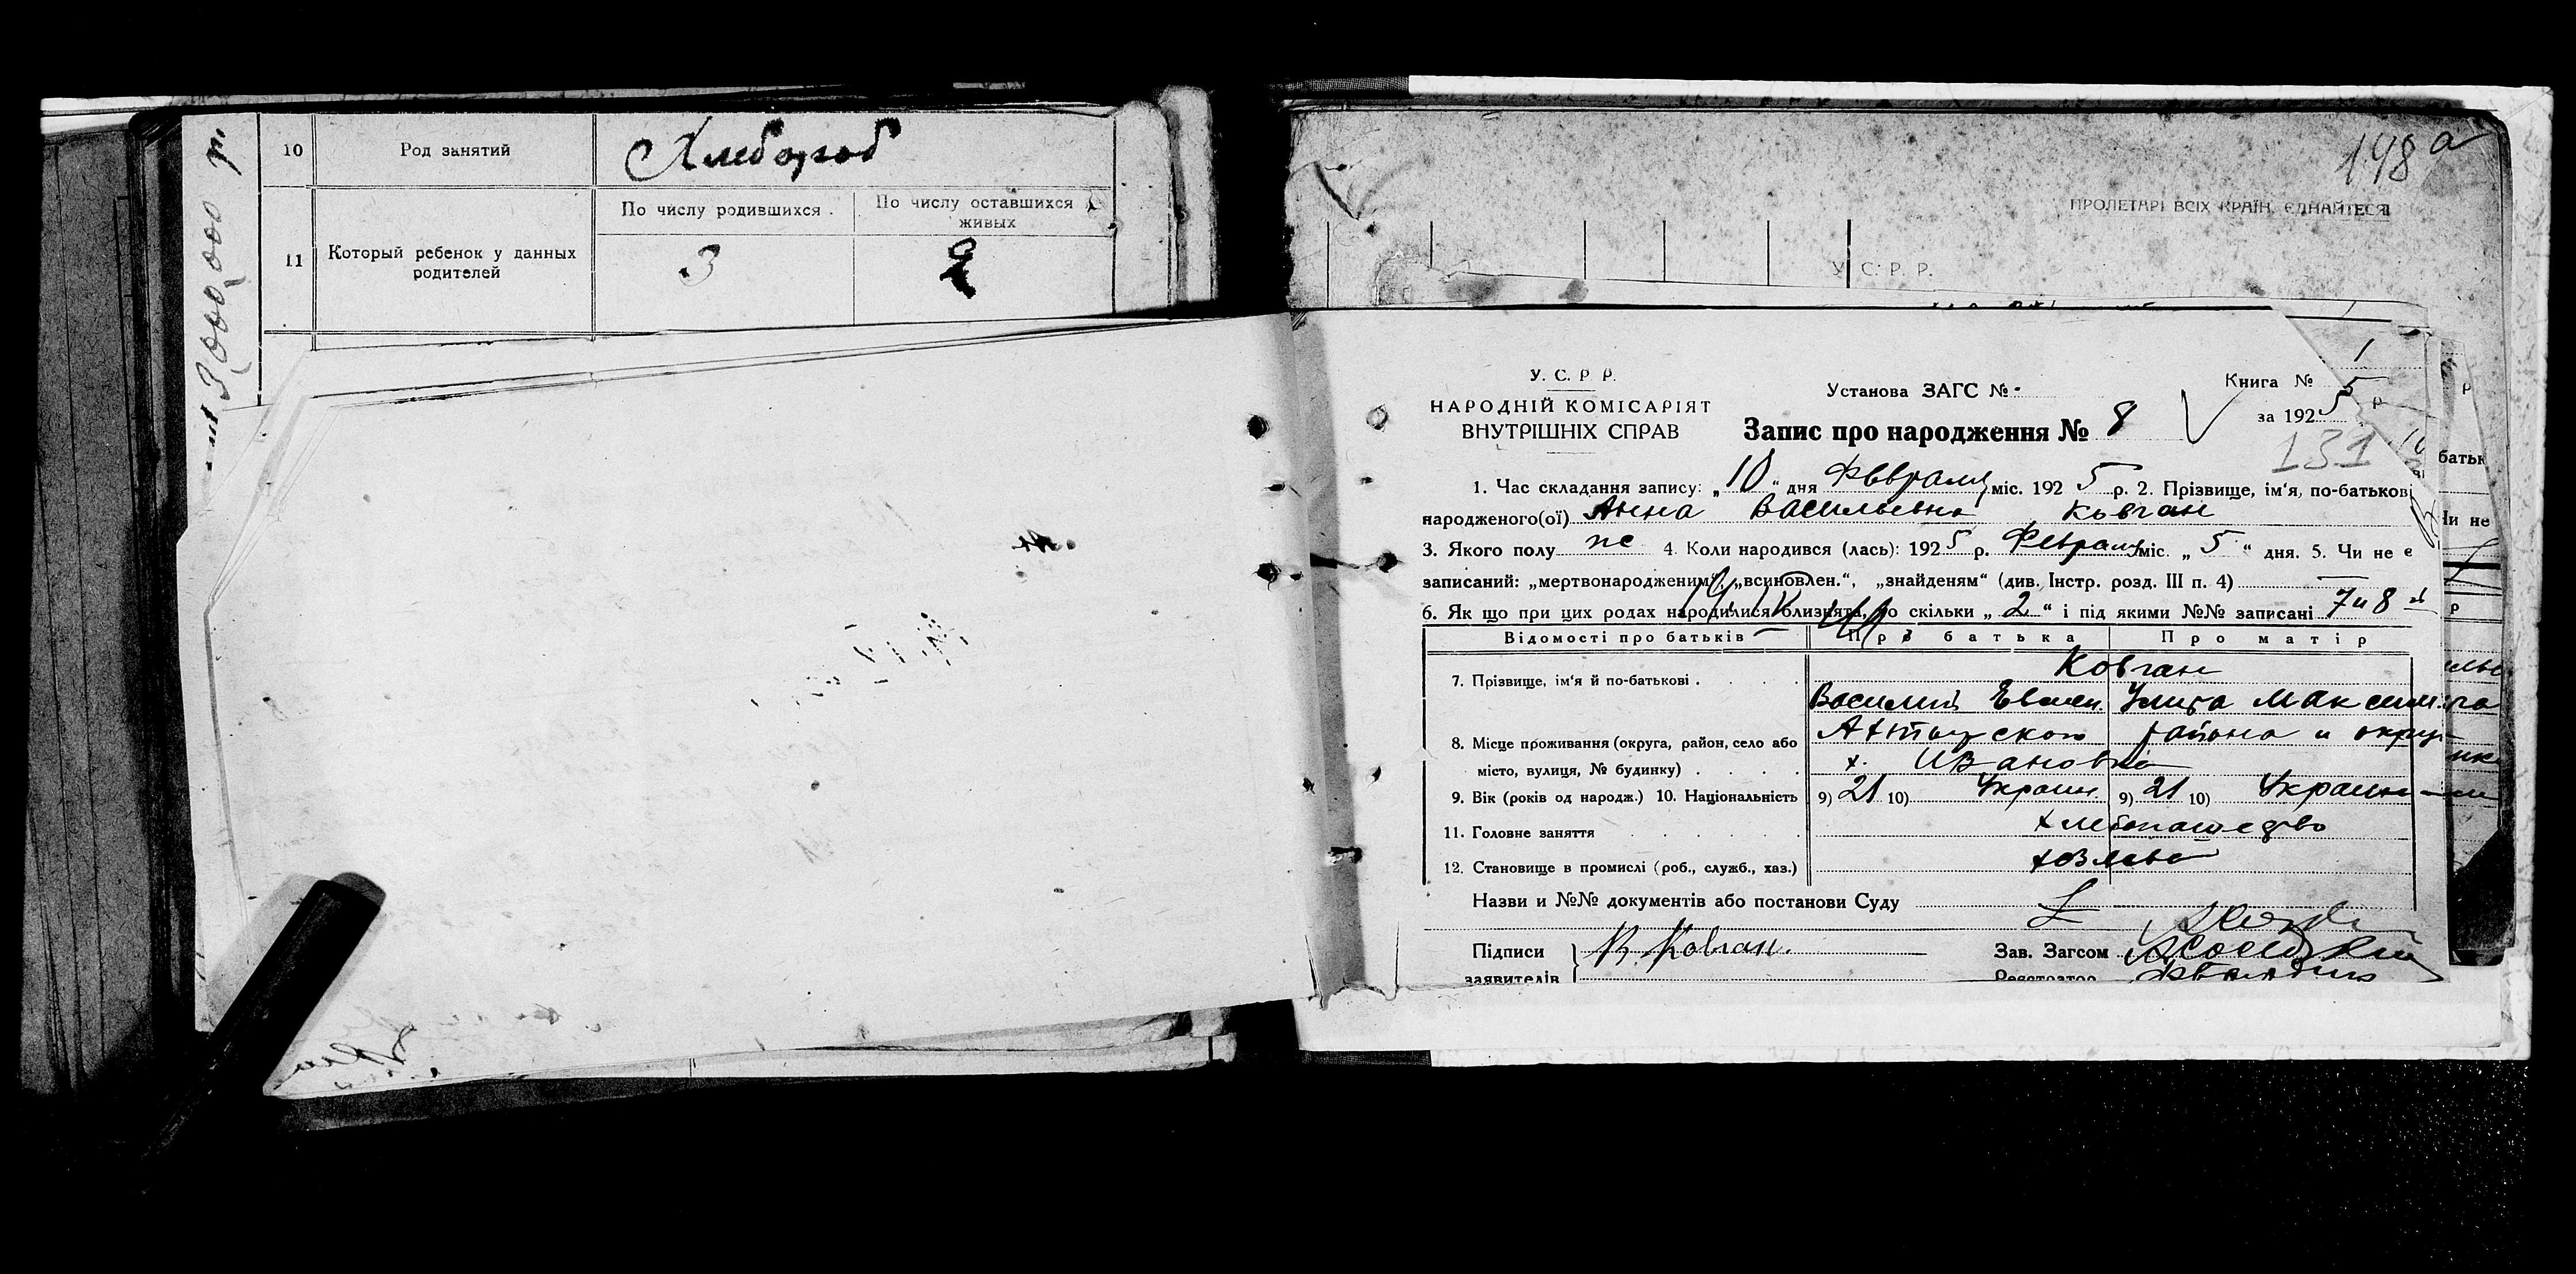 10 Род занятий Хлебороб
По числу родившихся По числу оставшихся живых
11 Который ребенок у данных родителей 3
3000,000 р.
198 а
ПРОЛЕТАРІ ВСІХ КРАЇН, ЄДНАЙТЕСЯ
У. С. Р. Р.
У. С. Р. Р.
НАРОДНІЙ КОМІСАРІЯТ
ВНУТРІШНІХ СПРАВ
Установа ЗАГС № -
Книга № 5
за 1925
Запис про народження № 8
131
1. Час складання запису: „10“ дня Февраля міс. 1925 р. 2. Прізвище, ім‘я, по-батькові
народженого(ої) Анна Васильевна Ковган
3. Якого полу же 4. Коли народився (лась): 1925 р. Февраля міс. „5“ дня. 5. Чи не є
записаний: „мертвонародженим“, „всиновлен.“, „знайденям“ (див. Інстр. розд. III п. 4) —
6. Як що при цих родах народилися близнята, то скільки „2“ і під якими №№ записані 7 и 8
Відомості про батьків Про батька Про матір
7. Прізвище, ім‘я й по-батькові Ковган
Василий Евмен Улита Максим
8. Місце проживання (округа, район, село або района и округ
місто, вулиця, № будинку) х. Ивановка
9. Вік (років од народж.) 10. Національність 9) 21 10) Украин. 9) 21 10) Украин
11. Головне заняття хлебопашество
12. Становище в промислі (роб., служб., хаз.)
Назви и №№ документів або постанови Суду
Підписи В. Ковган. Зав. Загсом
заявителів Реєстратор
батьк
Чи не